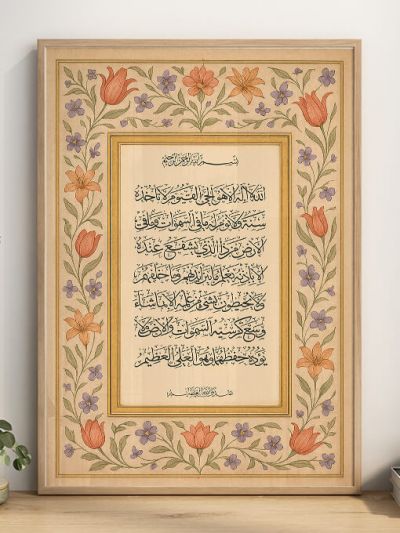 بسم الله الرحمن الرحيم
الله لا اله الا هو الحي القيوم لا تاخذه
سنة ولا نوم له ما في السموات وما في
الارض من ذا الذي يشفع عنده
الا باذنه يعلم ما بين ايديهم وما خلفهم
ولا يحيطون بشيء من علمه الا بما شاء
وسع كرسيه السموات والارض
يؤده حفظهما وهو العلي العظيم